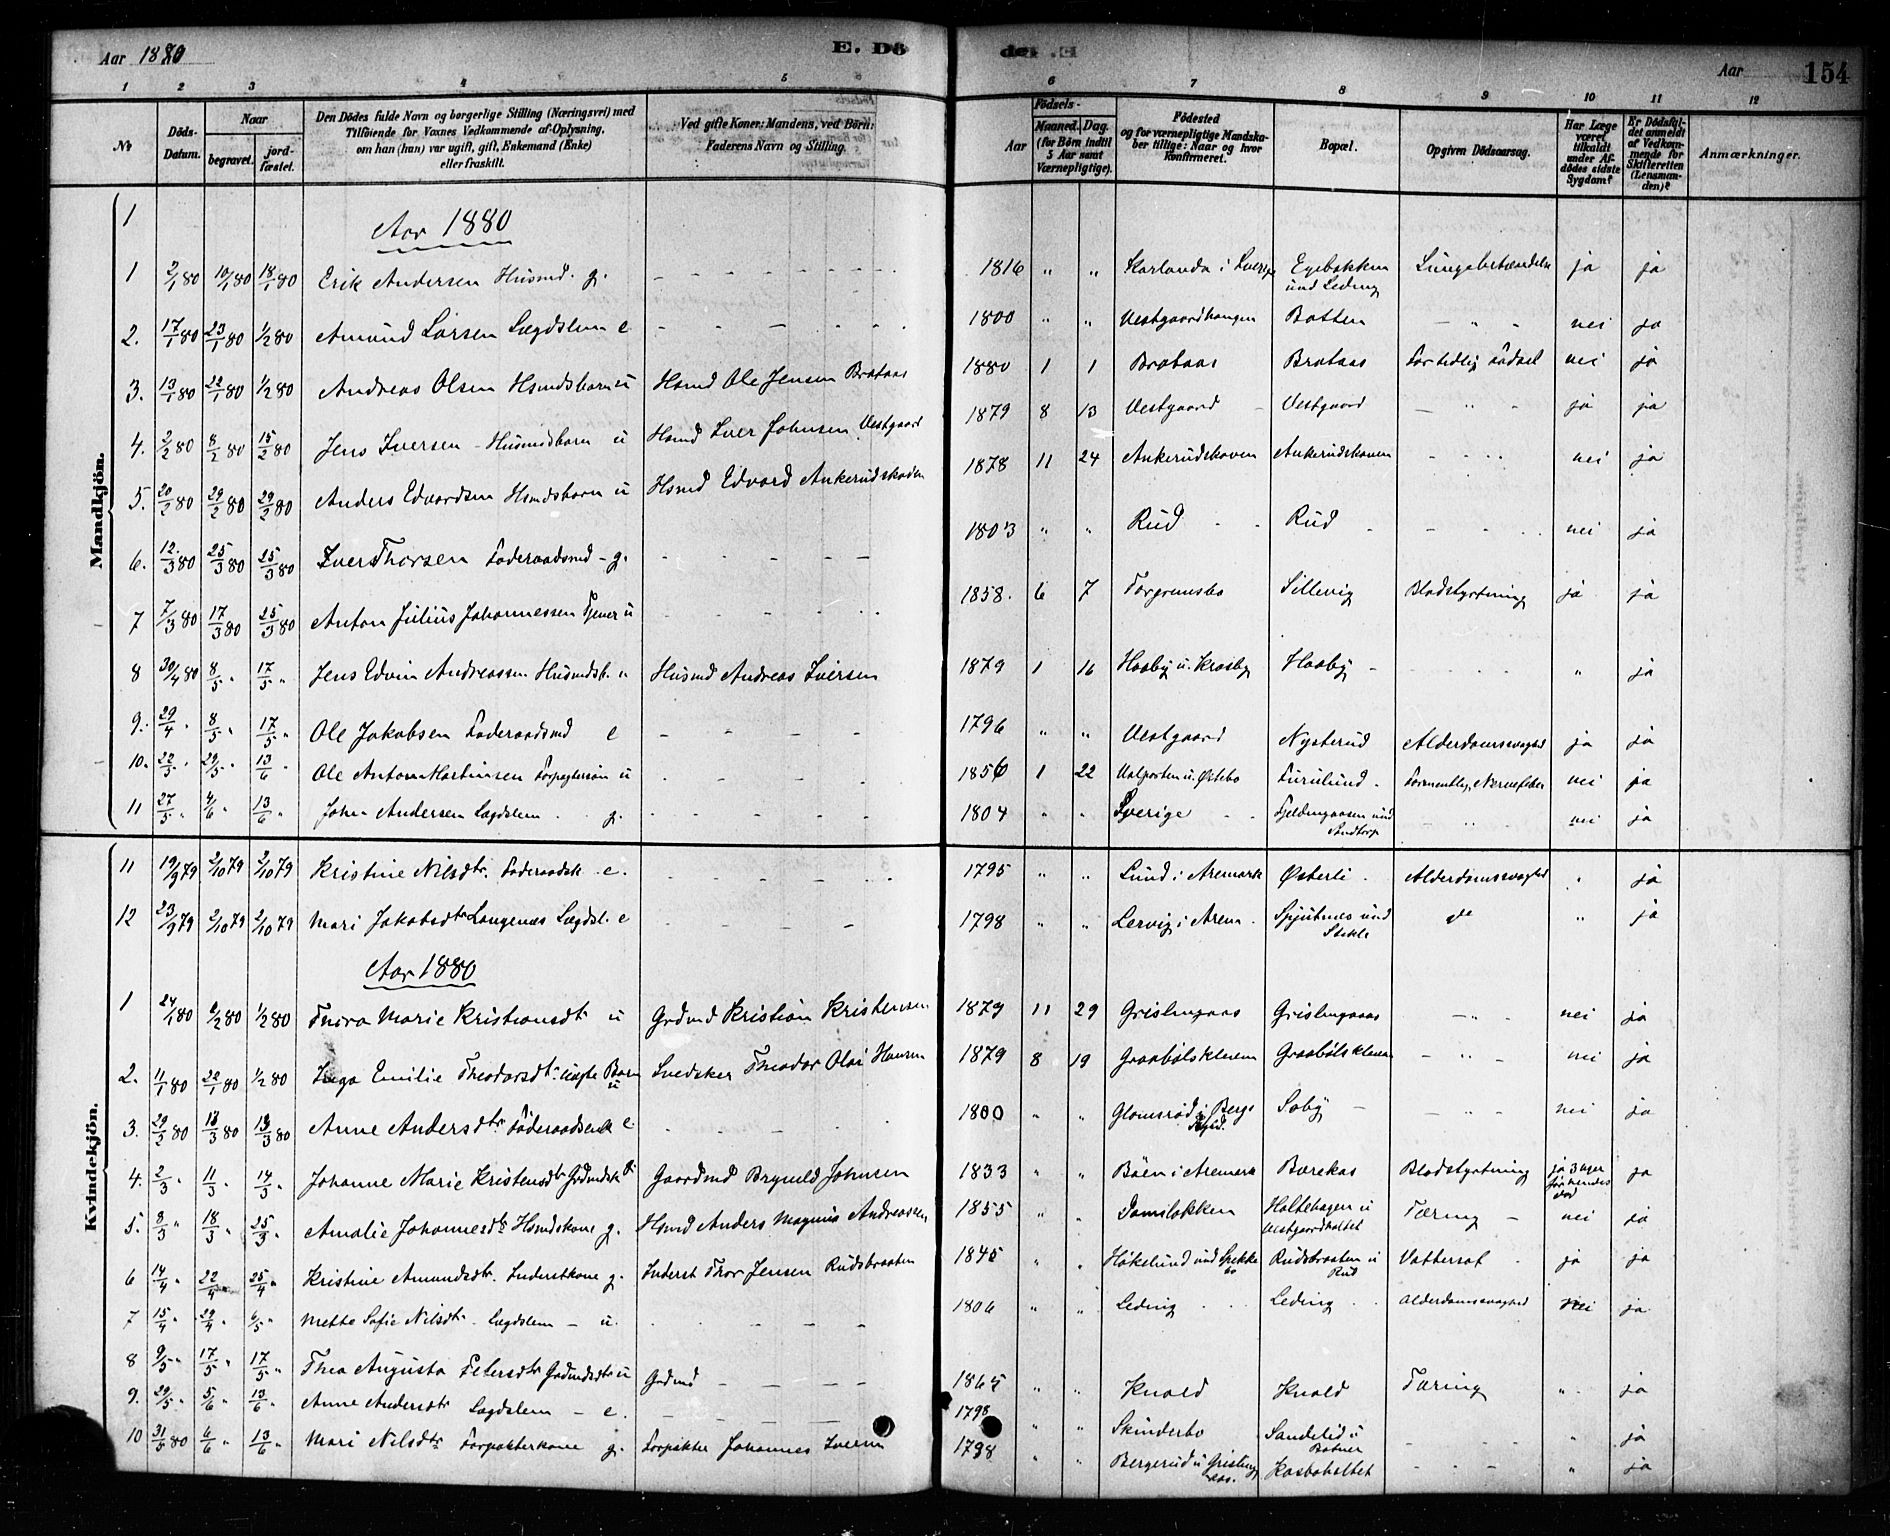 Aar 1880
E. Dö
154
Aar
1 2 3 4 5 6 7 8 9 10 11 12
No
Döds-Datum.
Naar
begravet.
jord-fæstet.
Den Dödes fulde Navn og borgerlige Stilling (Næringsvei) med Tilföiende for Voxnes Vedkommende af Oplysning, om han (hun) var ugift, gift, Enkemand (Enke) eller fraskilt.
Ved gifte Koner: Mandens, ved Börn: Faderens Navn og Stilling.
Födsels-
Aar
Maaned. Dag.
(for Börn indtil 5 Aar samt Værnepligtige).
Födested og for værnepligtige Mandskaber tillige: Naar og hvor Konfirmeret.
Bopæl.
Opgiven Dödsaarsag.
Har Læge været tilkaldt under Afdödes sidste Sygdom?
Er Dödsfaldet anmeldt af Vedkommende for Skifteretten (Lensmanden)?
Anmærkninger.
Mandkjön.
1
Aar 1880
1 2/1 80 10/1 80 18/1 80 Erik Andersen Husmd. g. 1816 " " Karlanda i Sverige Egebakken und Leding Lungebetændelse ja ja
2. 17/1 80 23/1 80 1/2 80 Amund Larsen Lægdslem e 1800 " " Vestgaardhaugen Botten nei ja
3. 13/1 80 22/1 80 1/2 80 Andreas Olsen Hsmdsbarn u Hsmd Ole Jensen Brataas 1880 1 1 Brataas Brataas For tidlig Födsel nei ja
4. 2/2 80 8/2 80 15/2 80 Jens Iversen Husmdsbarn u Hsmd Iver Johnsen Vestgaard 1879 8 13 Vestgaard Vestgaard ja ja
5. 20/2 80 29/2 80 29/2 80 Anders Edvardsen Hsmdsbarn u Hsmd Edvard Ankerudskoven 1878 11 24 Ankerudskoven Ankerudskoven nei ja
6. 12/3 80 25/3 80 25/3 80 Iver Thorsen Föderaadsmd g. 1803 " " Rud Rud nei ja
7 7/3 80 17/3 80 25/3 80 Anton Julius Johannessen Tjener u 1858. 6 7 Torgrimsbo Sillevig Blodstyrtning ja ja
8 30/4 80 8/5 " 17/5 " Jens Edvin Andreassen Husmdsb. u Husmd Andreas Iversen 1879 1 16 Haaby u. Krosby Haaby " ja
9. 29/4 " 8/5 " 17/5 " Ole Jakobsen Föderaadsmd e 1796 " " Vestgaard Nysterud Alderdomssvaghed ja ja
10. 22/5 " 29/5 " 13/6 " Ole Anton Martinsen Forpagtersön u 1856 1 22 Valporten u. Østebo Furulund Formentlig Nervefeber nei ja
11 27/5 " 4/6 " 13/6 " John Andersen Lægdslem g. 1804 " " Sverige Fjeldmgaasen und Sandtorp nei ja
Kvindekjön.
11 19/9 79 2/10 79 2/10 79 Kristine Nilsdtr. Föderaadsk e. 1795 " " Lund i Aremark Østerli Alderdomssvaghed " ja
12 23/9 79 2/10 79 2/10 79 Mari Jakobsdtr Langenæs Lægdsl. e 1798 " " Lervig i Arem. Spjutnes und Stikle do " ja
Aar 1880
1 24/1 80 1/2 80 1/2 80 Thora Marie Kristiansdtr u Grdmd Kristian Kristensen 1879 11 29 Grislingaas Grislingaas nei ja
2. 11/1 80 22/1 80 1/2 80 Inga Emilie Theodorsdtr. uægte Barn u Svedsker Theodor Olai Hansen 1879 8 19 Graabölskleven Graabölskleven nei ja
3. 29/2 80 13/3 80 13/3 80 Anne Andersdtr Föderaadsenk e 1800 " " Glomsröd i Bergs Soby nei ja
4. 2/3 " 11/3 " 14/3 " Johanne Marie Kristensdtr Grdmdsk Gaardmd Brynild Johnsen 1833 " " Böen i Aremark Bærekas Blodstyrtning ja 3 uger för hendes död ja
5. 8/3 " 18/3 " 25/3 " Amalie Johannesdtr Hsmdskone g. Hsmd Anders Magnus Andreassen 1855 " " Damslokken Holtehagen u Vestgaardholtet Tæring nei ja
6 14/4 " 22/4 " 25/4 " Kristine Amundsdtr. Inderstkone g. Inderst Thor Jensen Rudsbraaten 1845 " " Høkelund und Spekkebo Rudsbraaten u Rud Vattersot ja ja
7 15/4 " 29/4 " 6/5 " Mette Sofie Nilsdtr. Lægdslem u. 1806 " " Leding Leding Alderdomssvaghed nei ja
8 9/5 " 17/5 " 17/5 " Thea Augusta Petersdtr Grdmdsdtr u Grdmd 1865 " " Knold Knold Tæring " ja
9. 29/5 " 5/6 " 13/6 " Anne Andersdtr Lægdslem e. 1798 " " Skinderbo Sandelid u Botner " ja
10 31/5 80 6/6 " 13/6 " Mari Nilsdtr Forpakterkone g. Forpakter Johannes Iversen 1798 " " Bergerud u Grislingaas Kasboholtet " ja